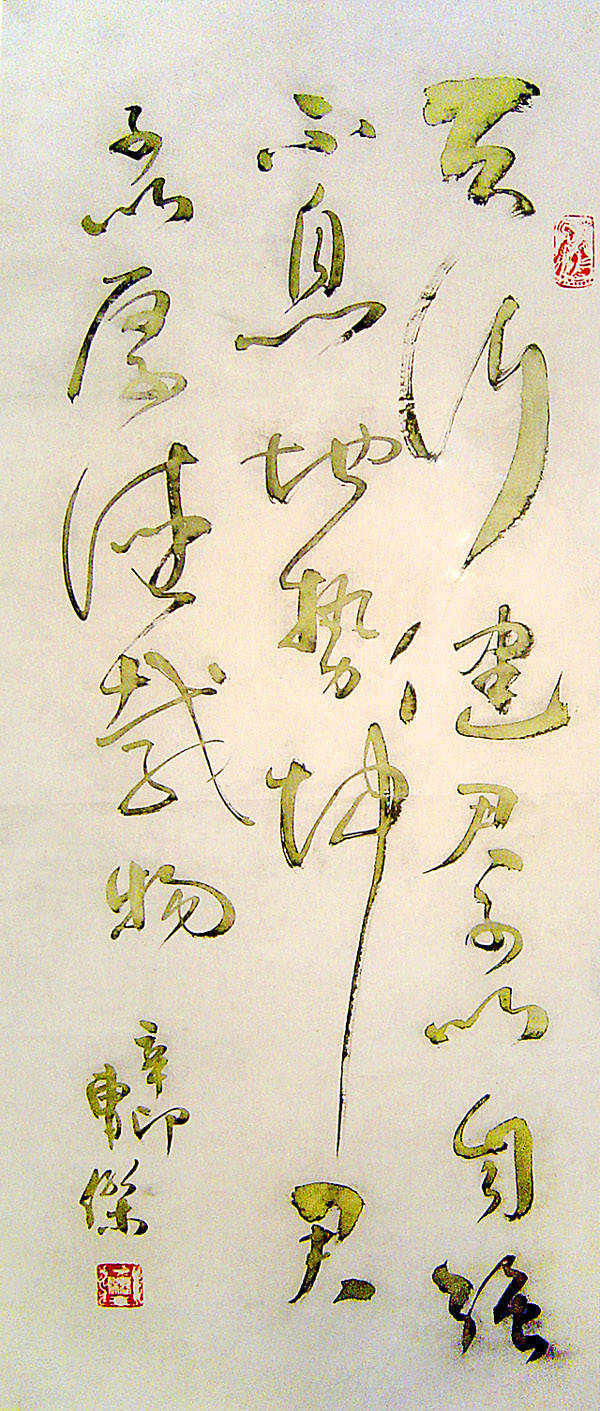 天行健君子以自強
不息地勢坤君
子以厚德載物
辛卯
東傑